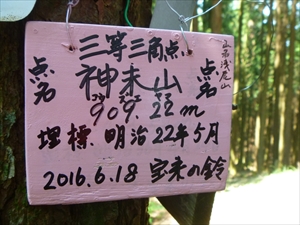 三等三角点
点名 神末山 点名
909.22m
埋標 明治22年5月
2016.6.18 宝来の鈴